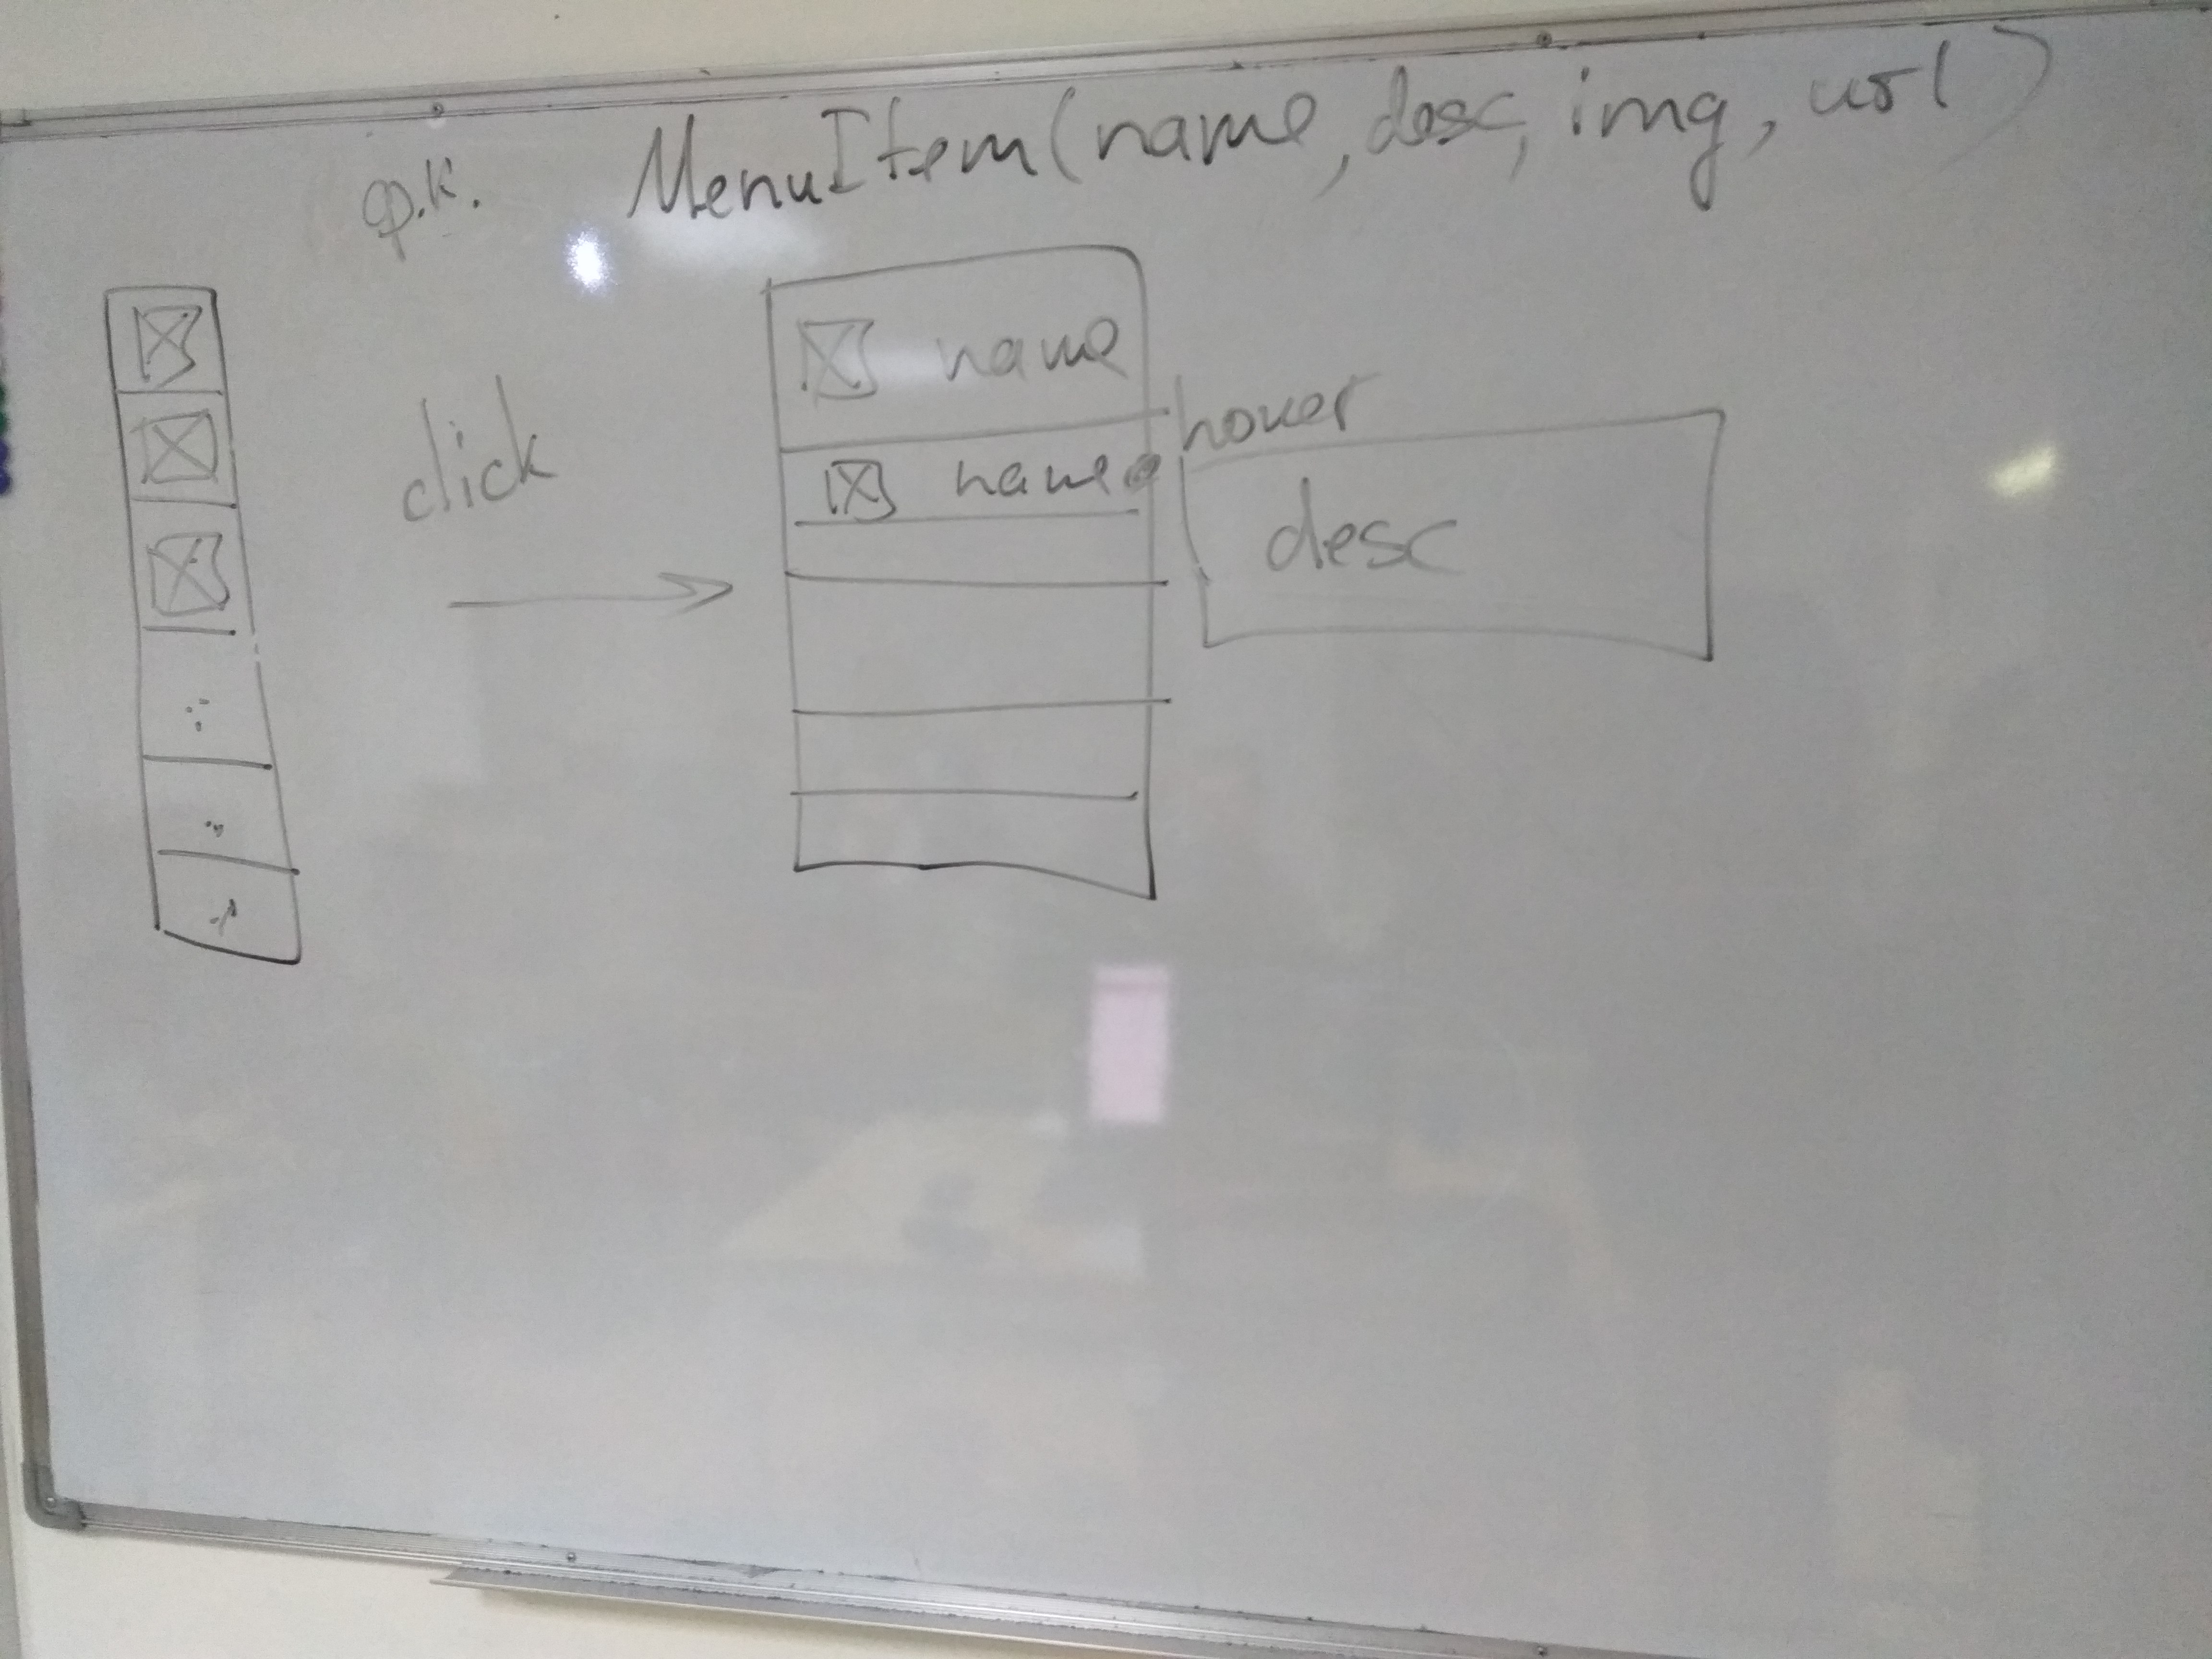 ф.к. MenuItem(name, desc, img, url)
click
name
name
hover
desc